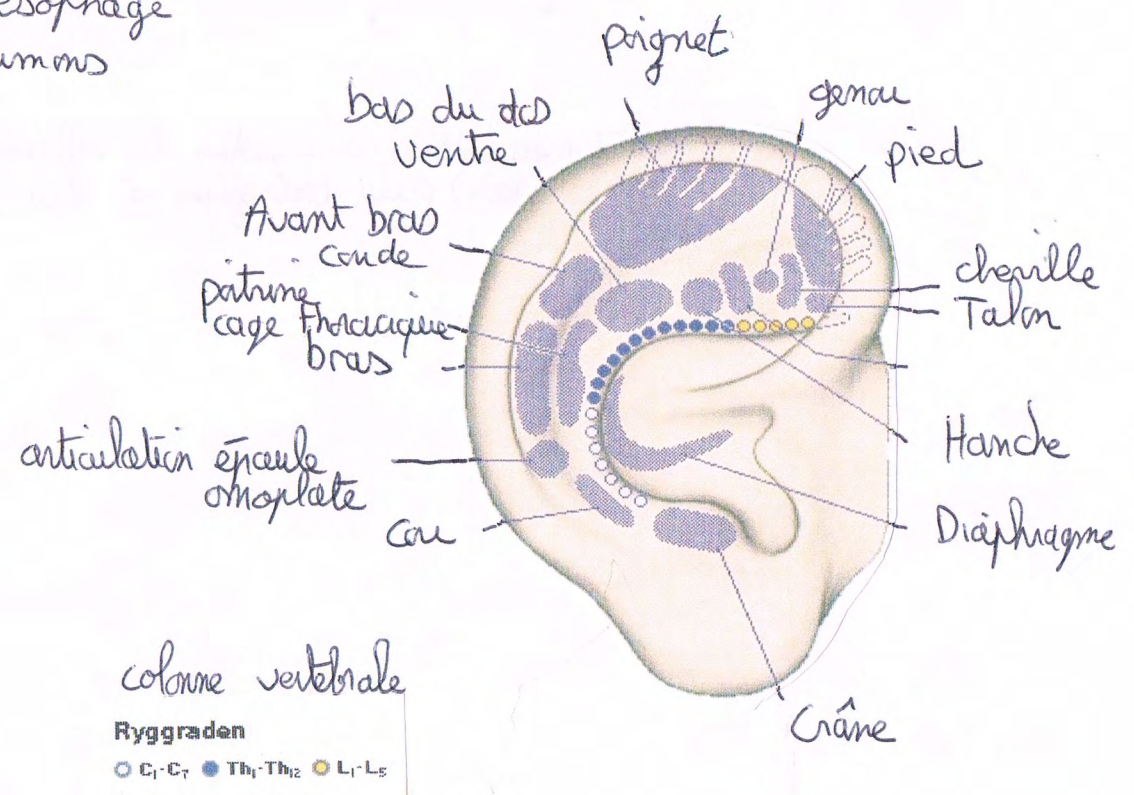 esophage
umons
poignet
genou
pied
bas du dos
ventre
Avant bras
coude
poitrine
cage thoracique
bras
cheville
Talon
articulation épaule
omoplate
cou
Hanche
Diaphragme
Crâne
colonne vertébrale
Ryggraden
C₁-C₇ Th₁-Th₁₂ L₁-L₅